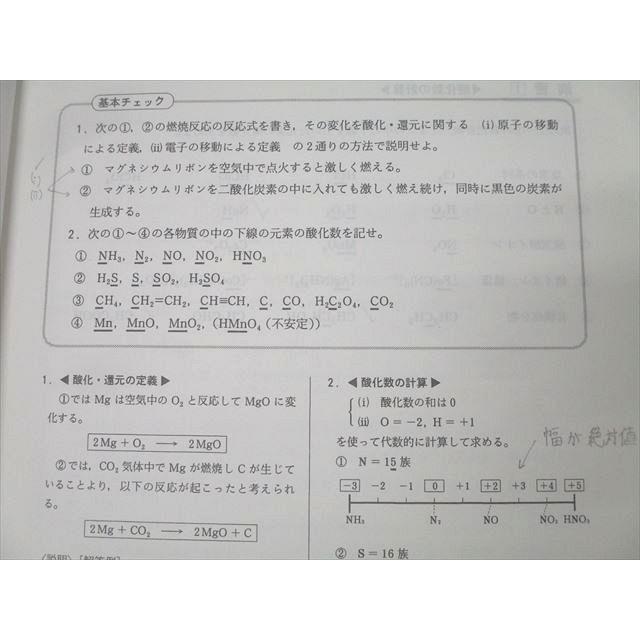 基本チェック
1. 次の①, ②の燃焼反応の反応式を書き, その変化を酸化・還元に関する (i)原子の移動
による定義, (ii)電子の移動による定義 の2通りの方法で説明せよ。
① マグネシウムリボンを空気中で点火すると激しく燃える。
② マグネシウムリボンを二酸化炭素の中に入れても激しく燃え続け, 同時に黒色の炭素が
生成する。
2. 次の①～④の各物質の中の下線の元素の酸化数を記せ。
① NH₃, N₂, NO, NO₂, HNO₃
② H₂S, S, SO₂, H₂SO₄
③ CH₄, CH₂=CH₂, CH≡CH, C, CO, H₂C₂O₄, CO₂
④ Mn, MnO, MnO₂, (HMnO₄(不安定))
(i)
(ii)
1. ◀酸化・還元の定義▶
①では Mg は空気中の O₂ と反応して MgO に変
化する。
2Mg + O₂ ⟶ 2MgO
②では, CO₂ 気体中で Mg が燃焼し C が生じて
いることより, 以下の反応が起こったと考えられ
る。
2Mg + CO₂ ⟶ 2MgO + C
〈説明〉［解答例］
2. ◀酸化数の計算▶
(i) 酸化数の和は 0
(ii) O = −2, H = +1
を使って代数的に計算して求める。
幅が絶対値
① N = 15族
−3 −2 −1 0 +1 +2 +3 +4 +5
NH₃ N₂ NO NO₂ HNO₃
② S = 16族